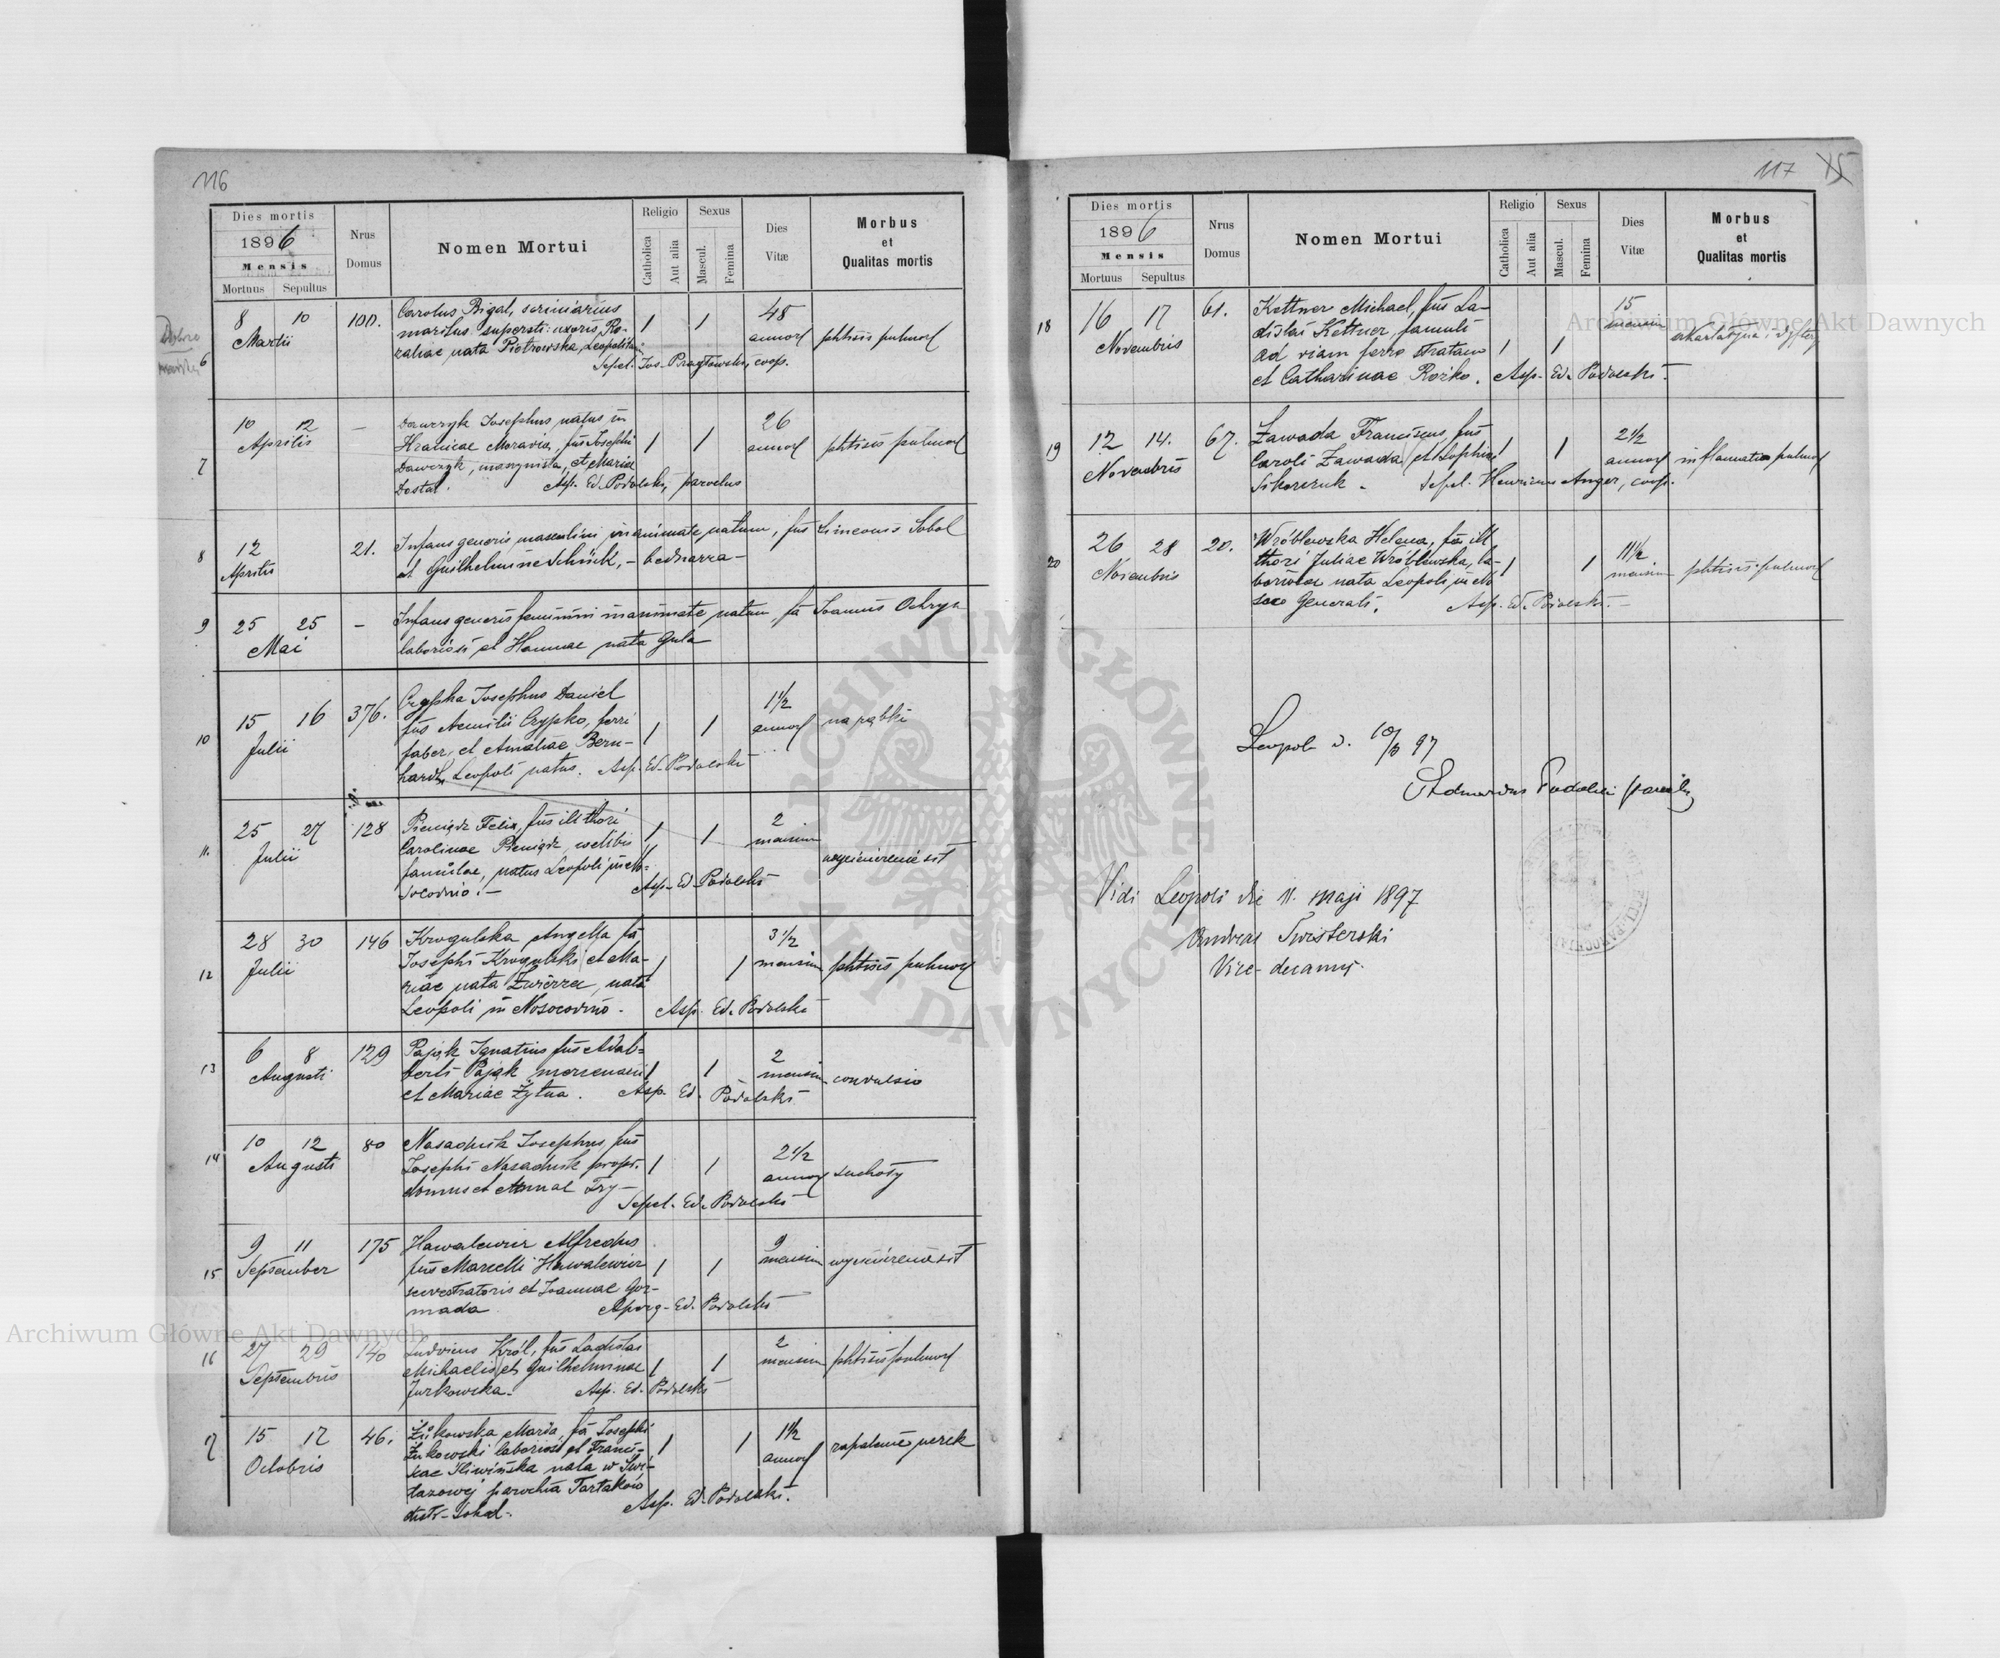 116
Dies mortis
1896
Mensis
Mortuus Sepultus
Nrus Domus
Nomen Mortui
Religio
Catholica
Aut alia
Sexus
Mascul.
Femina
Dies Vitæ
Morbus et Qualitas mortis
6
8 10 Martii
100.
Carolus Bigal, scriniarius
maritus superstit: uxoris Ro-
zaliae nata Piotrowska, Leopolitan.
Sepel. Jos. coop.
1 1
48 annor
phtisis pulmor
7
10 12 Aprilis
—
Dawczyk Josephus natus in
Hranicae Moravia, fius Josephi
Dawczyk, maszynista, et Mariae
Dostal. Asp. Ed. Podolski, parochus
1 1
26 annor
phtisis pulmor
8
12 Aprilis
21.
Infans generis masculini inanimate natum, fius Simeonis Sobol
et Guilhelmine Schück, – bednarza –
9
25 25 Mai
–
Infans generis feminini inanimate natum, fa Joannis Ochryn
laboriosi et Hannae nata Gula
10
15 16 Julii
376.
Czypka Josephus Daniel
fius Aemilii Czypko, ferri
faber, et Amaliae Bern-
hardt, Leopoli natus. Asp. Ed. Podolski
1 1
1 1/2 annor
na ząbki
11.
25 27 Julii
128
Pieniądz Felix, fius ill thori
Carolinae Pieniądz, coelibis
famulae, natus Leopoli in No-
socomio. – Asp. Ed. Podolski
1 1
2 mensium
wycieńczenie sił
12
28 30 Julii
146
Krogulska Angella fa
Josephi Krogulski et Ma-
riae nata Zwierze, nata
Leopoli in Nosocomio. Asp. Ed. Podolski
1 1
3 1/2 mensium
phtisis pulmor
13
6 8 Augusti
129
Pająk Ignatius fius Adal-
berti Pająk mercenarii
et Mariae Żytna. Asp. Ed. Podolski
1 1
2 mensium
convulsio
14
10 12 Augusti
80
Nasadnik Josephus, fius
Josephi Nasadnik propr.
domus et Annae Try-
Sepel. Ed. Podolski
1 1
2 1/2 annor
suchoty
15
9 11 September
175
Hawalewicz Alfredus
fius Marcelli Hawalewicz
et Joannae Gor-
mada Ed. Podolski
1 1
9 mensium
wycieńczenie sił
16
27 29 Septembris
140
Ludvicus Król, fius Ladislai
Michaelis et Guilhelminae
Jurkowska. Asp. Ed. Podolski
1 1
2 mensium
phtisis pulmor
17
15 17 Octobris
46.
Żukowska Maria, fa Josephi
Żukowski laboriosi et Francis-
cae Śliwińska nata w Świ-
tazowej parochia Tartaków
distr. Sokal. Asp. Ed. Podolski.
1 1
1 1/2 annor
zapalenie nerek
117
Dies mortis
1896
Mensis
Mortuus Sepultus
Nrus Domus
Nomen Mortui
Religio
Catholica
Aut alia
Sexus
Mascul.
Femina
Dies Vitæ
Morbus et Qualitas mortis
18
16 17 Novembris
61.
Kettner Michael, fius La-
dislai Kettner, famuli
ad viam ferro stratam
et Catharinae Rożko. Asp. Ed. Podolski.
1 1
15 mensium
szkarlatyna i dyfter
19
12 14. Novembris
67.
Zawada Franciscus fius
Caroli Zawada et Sophiae
Sikorczuk – Sepel. Henricus Anger, coop.
1 1
2 1/2 annor
inflamatio pulmor
20
26 28 Novembris
20.
Wróblewska Helena, fa ill
thori Juliae Wróblewska, la-
boriosae nata Leopoli, in No
soc Generali. Asp. Ed. Podolski. –
1 1
11 1/2 mensium
phtisis pulmor
Leopoli d. 10/ 97
Edmundus Podolski
Vidi Leopoli die 11. maji 1897
Andreas
Vice-decanus.
Archiwum Główne Akt Dawnych
Archiwum Główne Akt Dawnych
ARCHIWUM GŁÓWNE AKT DAWNYCH